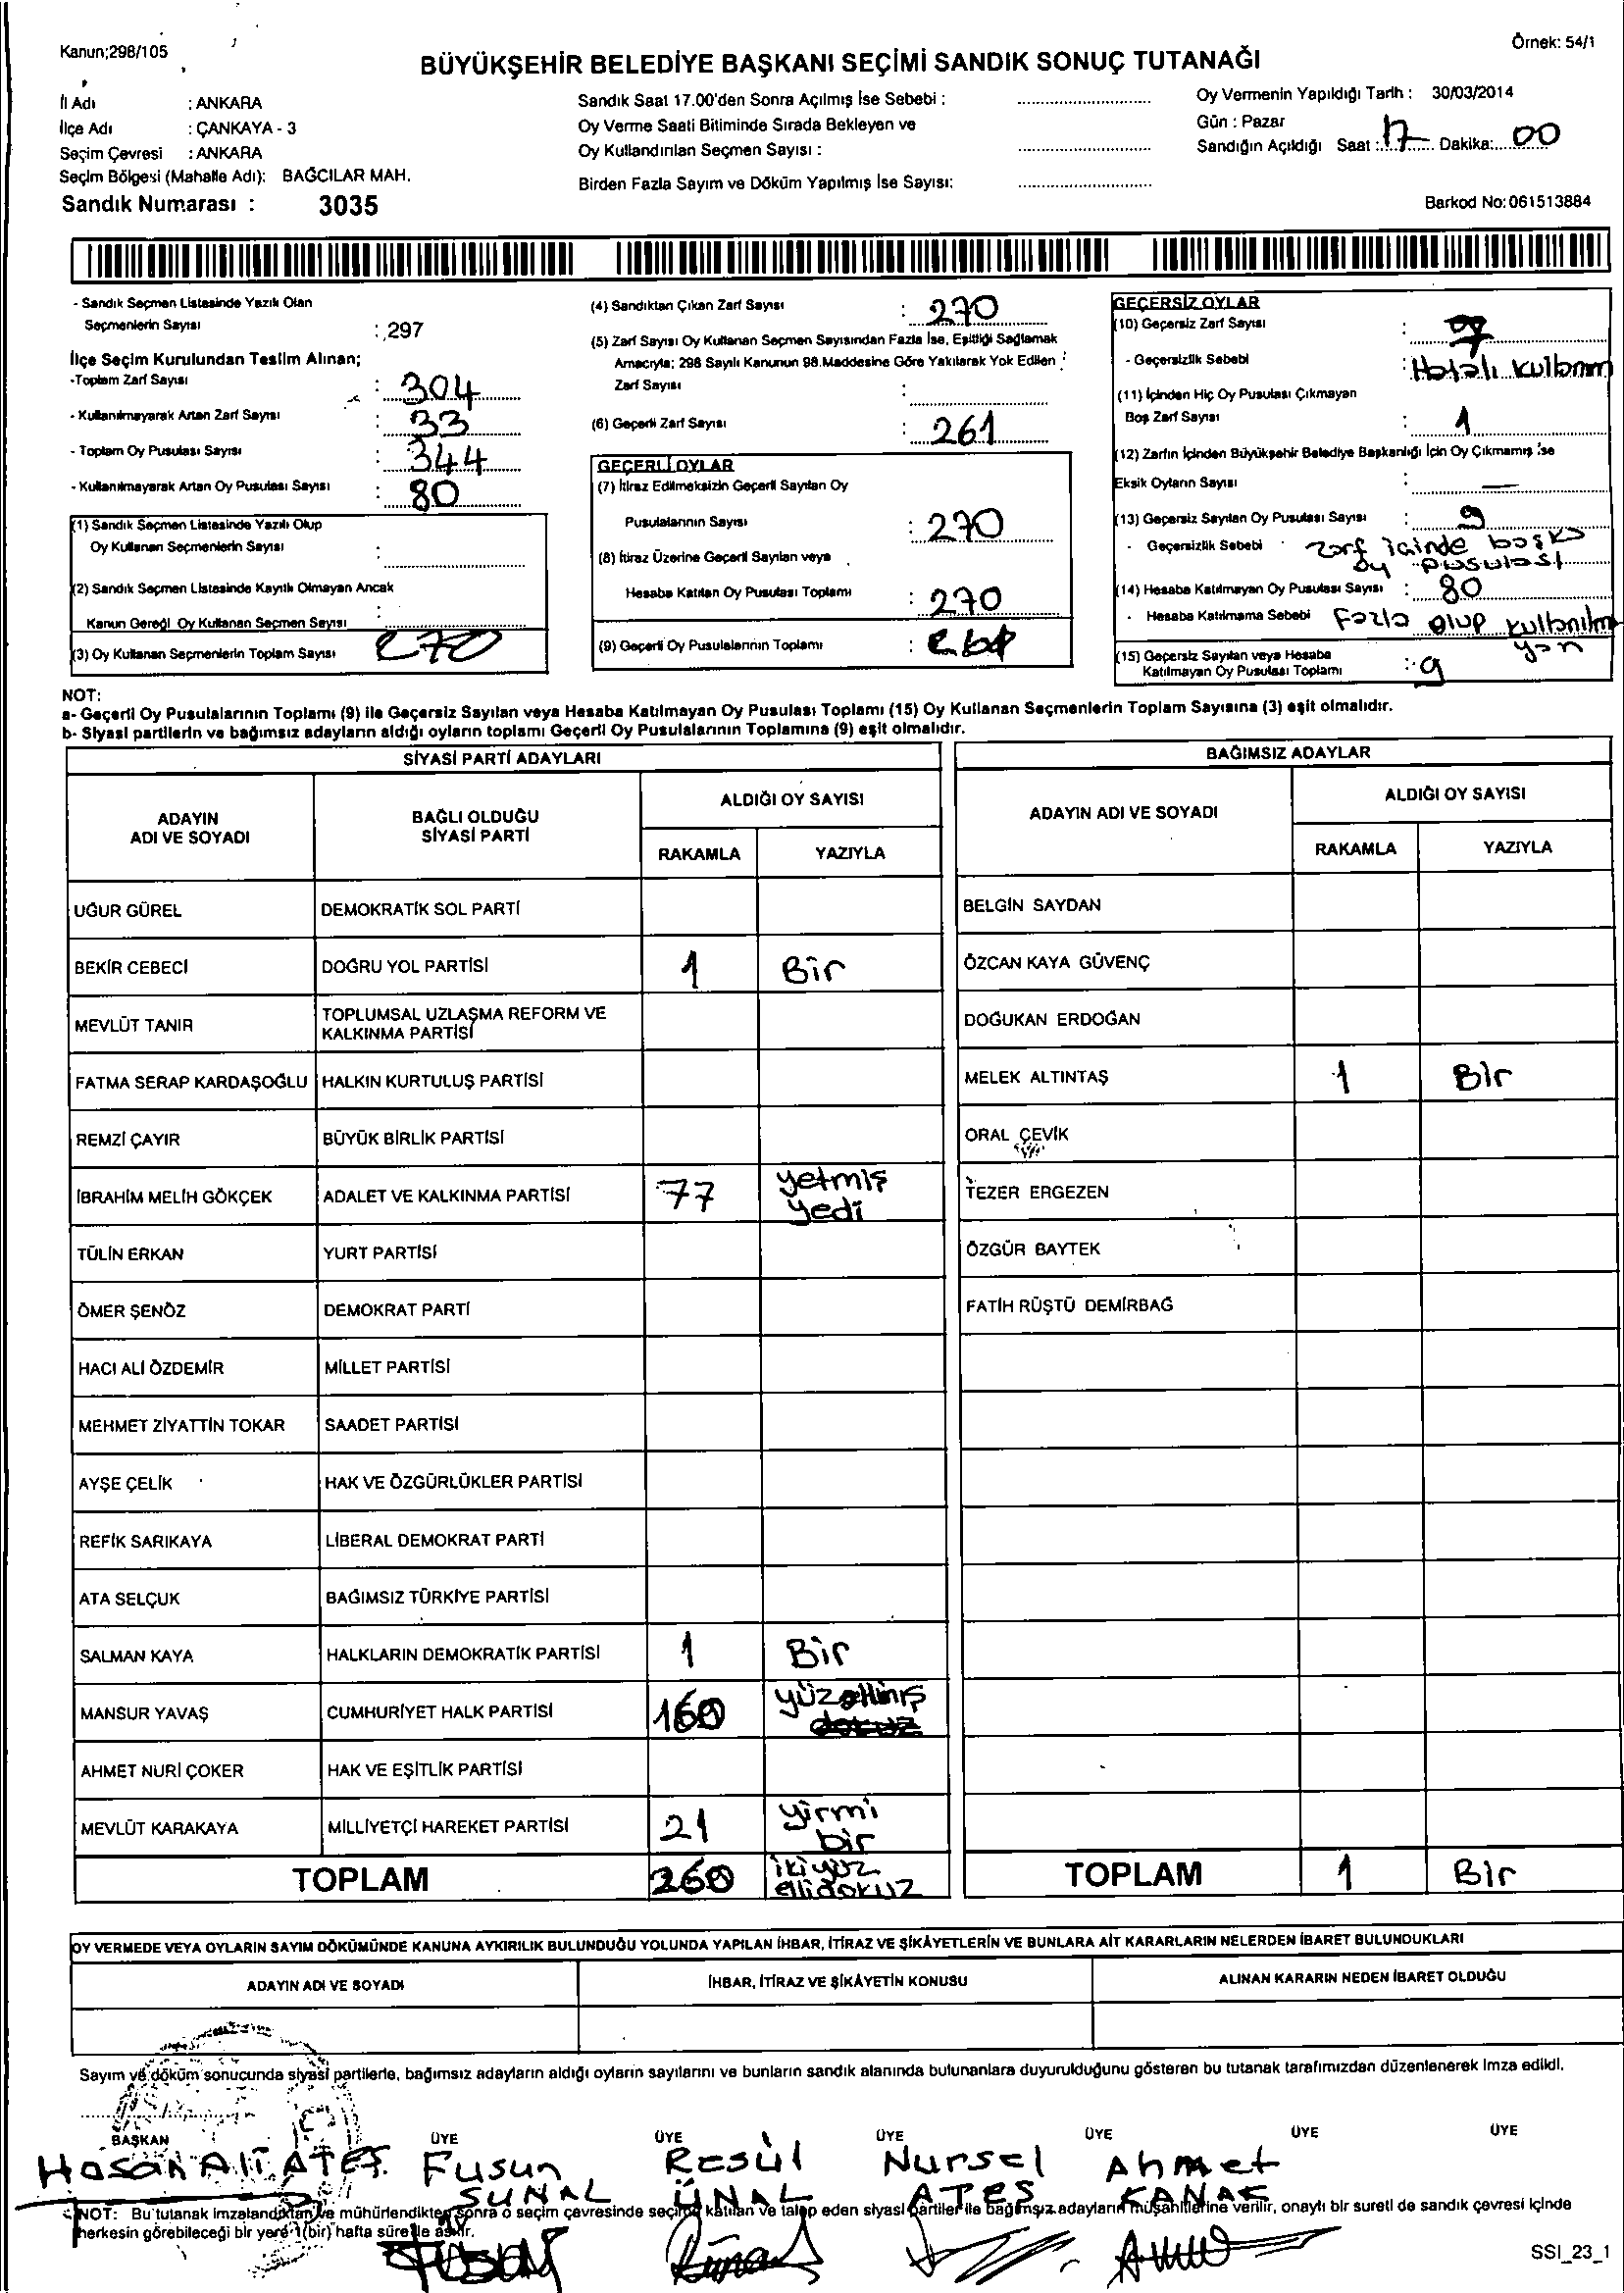 Kanun;298/105
Örnek: 54/1
BÜYÜKŞEHİR BELEDİYE BAŞKANI SEÇİMİ SANDIK SONUÇ TUTANAĞI
İl Adı : ANKARA
İlçe Adı : ÇANKAYA - 3
Seçim Çevresi : ANKARA
Seçim Bölgesi (Mahalle Adı): BAĞCILAR MAH.
Sandık Numarası : 3035
Sandık Saat 17.00'den Sonra Açılmış İse Sebebi :
Oy Verme Saati Bitiminde Sırada Bekleyen ve
Oy Kullandırılan Seçmen Sayısı :
Birden Fazla Sayım ve Döküm Yapılmış İse Sayısı:
Oy Vermenin Yapıldığı Tarih : 30/03/2014
Gün : Pazar
Sandığın Açıldığı Saat : 17 Dakika: 00
Barkod No: 061513884
- Sandık Seçmen Listesinde Yazılı Olan
Seçmenlerin Sayısı : 297
İlçe Seçim Kurulundan Teslim Alınan;
-Toplam Zarf Sayısı : 304
- Kullanılmayarak Artan Zarf Sayısı : 33
- Toplam Oy Pusulası Sayısı : 344
- Kullanılmayarak Artan Oy Pusulası Sayısı : 80
(1) Sandık Seçmen Listesinde Yazılı Olup
Oy Kullanan Seçmenlerin Sayısı :
(2) Sandık Seçmen Listesinde Kayıtlı Olmayan Ancak
Kanun Gereği Oy Kullanan Seçmen Sayısı :
(3) Oy Kullanan Seçmenlerin Toplam Sayısı 270
(4) Sandıktan Çıkan Zarf Sayısı : 270
(5) Zarf Sayısı Oy Kullanan Seçmen Sayısından Fazla İse, Eşitliği Sağlamak
Amacıyla; 298 Sayılı Kanunun 98.Maddesine Göre Yakılarak Yok Edilen :
Zarf Sayısı :
(6) Geçerli Zarf Sayısı : 261
GEÇERLİ OYLAR
(7) İtiraz Edilmeksizin Geçerli Sayılan Oy
Pusulalarının Sayısı : 270
(8) İtiraz Üzerine Geçerli Sayılan veya
Hesaba Katılan Oy Pusulası Toplamı : 270
(9) Geçerli Oy Pusulalarının Toplamı :
GEÇERSİZ OYLAR
(10) Geçersiz Zarf Sayısı :
- Geçersizlik Sebebi : Hatalı
(11) İçinden Hiç Oy Pusulası Çıkmayan
Boş Zarf Sayısı : 1
(12) Zarfın İçinden Büyükşehir Belediye Başkanlığı İçin Oy Çıkmamış ise
Eksik Oyların Sayısı : —
(13) Geçersiz Sayılan Oy Pusulası Sayısı : 9
- Geçersizlik Sebebi : zarf içinde başka
oy pusulası
(14) Hesaba Katılmayan Oy Pusulası Sayısı : 80
- Hesaba Katılmama Sebebi Fazla olup kullanılma
yan
(15) Geçersiz Sayılan veya Hesaba
Katılmayan Oy Pusulası Toplamı : 9
NOT:
a- Geçerli Oy Pusulalarının Toplamı (9) ile Geçersiz Sayılan veya Hesaba Katılmayan Oy Pusulası Toplamı (15) Oy Kullanan Seçmenlerin Toplam Sayısına (3) eşit olmalıdır.
b- Siyasi partilerin ve bağımsız adayların aldığı oyların toplamı Geçerli Oy Pusulalarının Toplamına (9) eşit olmalıdır.
SİYASİ PARTİ ADAYLARI
ADAYIN ADI VE SOYADI
BAĞLI OLDUĞU SİYASİ PARTİ
ALDIĞI OY SAYISI
RAKAMLA YAZIYLA
UĞUR GÜREL DEMOKRATİK SOL PARTİ
BEKİR CEBECİ DOĞRU YOL PARTİSİ 1 Bir
MEVLÜT TANIR TOPLUMSAL UZLAŞMA REFORM VE
KALKINMA PARTİSİ
FATMA SERAP KARDAŞOĞLU HALKIN KURTULUŞ PARTİSİ
REMZİ ÇAYIR BÜYÜK BİRLİK PARTİSİ
İBRAHİM MELİH GÖKÇEK ADALET VE KALKINMA PARTİSİ 77 yetmiş
yedi
TÜLİN ERKAN YURT PARTİSİ
ÖMER ŞENÖZ DEMOKRAT PARTİ
HACI ALİ ÖZDEMİR MİLLET PARTİSİ
MEHMET ZİYATTİN TOKAR SAADET PARTİSİ
AYŞE ÇELİK HAK VE ÖZGÜRLÜKLER PARTİSİ
REFİK SARIKAYA LİBERAL DEMOKRAT PARTİ
ATA SELÇUK BAĞIMSIZ TÜRKİYE PARTİSİ
SALMAN KAYA HALKLARIN DEMOKRATİK PARTİSİ 1 Bir
MANSUR YAVAŞ CUMHURİYET HALK PARTİSİ 160
AHMET NURİ ÇOKER HAK VE EŞİTLİK PARTİSİ
MEVLÜT KARAKAYA MİLLİYETÇİ HAREKET PARTİSİ 21 yirmi
bir
TOPLAM 260 ikiyüz
ellidokuz
BAĞIMSIZ ADAYLAR
ADAYIN ADI VE SOYADI
ALDIĞI OY SAYISI
RAKAMLA YAZIYLA
BELGİN SAYDAN
ÖZCAN KAYA GÜVENÇ
DOĞUKAN ERDOĞAN
MELEK ALTINTAŞ 1 Bir
ORAL ÇEVİK
TEZER ERGEZEN
ÖZGÜR BAYTEK
FATİH RÜŞTÜ DEMİRBAĞ
TOPLAM 1 Bir
OY VERMEDE VEYA OYLARIN SAYIM DÖKÜMÜNDE KANUNA AYKIRILIK BULUNDUĞU YOLUNDA YAPILAN İHBAR, İTİRAZ VE ŞİKÂYETLERİN VE BUNLARA AİT KARARLARIN NELERDEN İBARET BULUNDUKLARI
ADAYIN ADI VE SOYADI İHBAR, İTİRAZ VE ŞİKÂYETİN KONUSU ALINAN KARARIN NEDEN İBARET OLDUĞU
Sayım ve döküm sonucunda siyasi partilerle, bağımsız adayların aldığı oyların sayılarını ve bunların sandık alanında bulunanlara duyurulduğunu gösteren bu tutanak tarafımızdan düzenlenerek imza edildi.
BAŞKAN ÜYE ÜYE ÜYE ÜYE ÜYE ÜYE
Hasan Ali ATEŞ Fusun Resül Nursel Ahmet
SUNAL ÜNAL ATEŞ KANAK
NOT: Bu tutanak imzalandıktan ve mühürlendikten sonra o seçim çevresinde seçime katılan ve talep eden siyasi partiler ile bağımsız adayların müşahitlerine verilir, onaylı bir sureti de sandık çevresi içinde
herkesin görebileceği bir yere 1 (bir) hafta süre ile asılır.
SSI_23_1